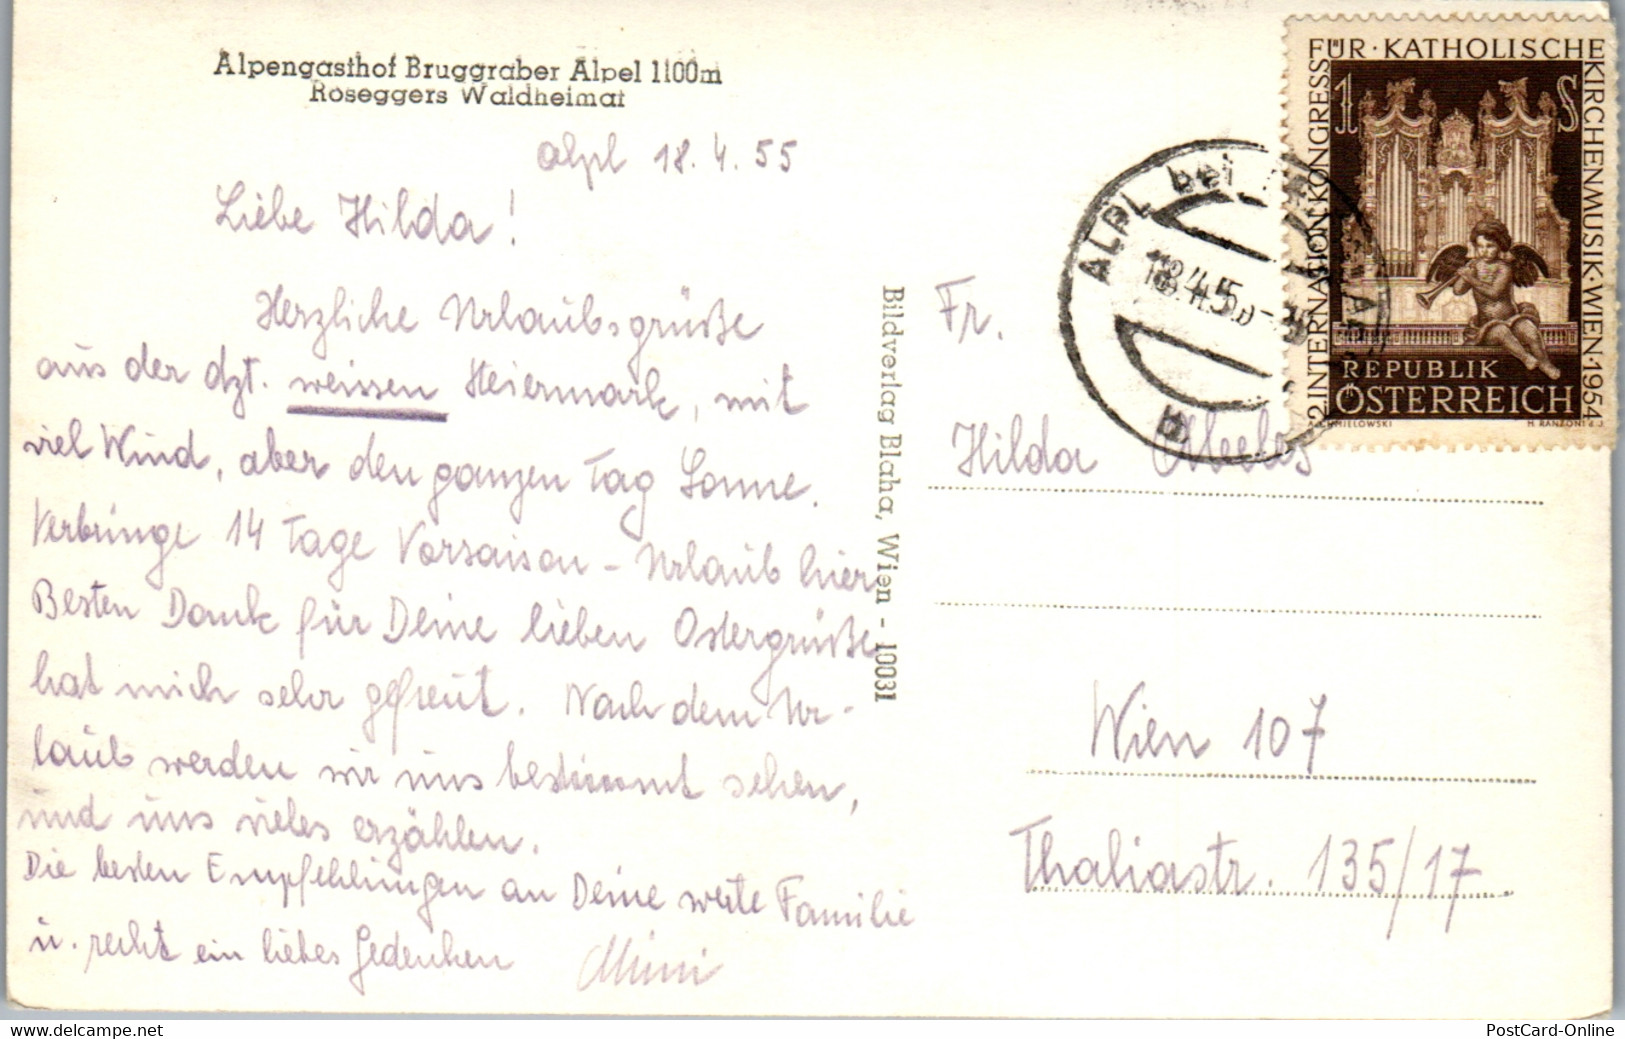 Alpengasthof Bruggraber Alpel 1100m
Roseggers Waldheimat
Alpl 18.4.55
Liebe Hilda!
Herzliche Urlaubsgrüße
aus der dzt. weissen Steiermark, mit
viel Wind, aber den ganzen Tag Sonne.
Verbringe 14 Tage Vorsaison-Urlaub hier
Besten Dank für Deine lieben Ostergrüße
hat mich sehr gefreut. Nach dem Ur-
laub werden wir uns bestimmt sehen,
und uns vieles erzählen.
Die besten Empfehlungen an Deine werte Familie
u. recht ein liebes Gedenken Mimi
Bildverlag Blaha, Wien - 10031
Fr.
Hilda
Wien 107
Thaliastr. 135/17
ALPL bei
18.4.55
2. INTERNATIONALER KONGRESS FÜR KATHOLISCHE KIRCHENMUSIK · WIEN · 1954
1 S
REPUBLIK
ÖSTERREICH
A. CHMIELOWSKI
H. RANZONI d. J.
www.delcampe.net
PostCard-Online